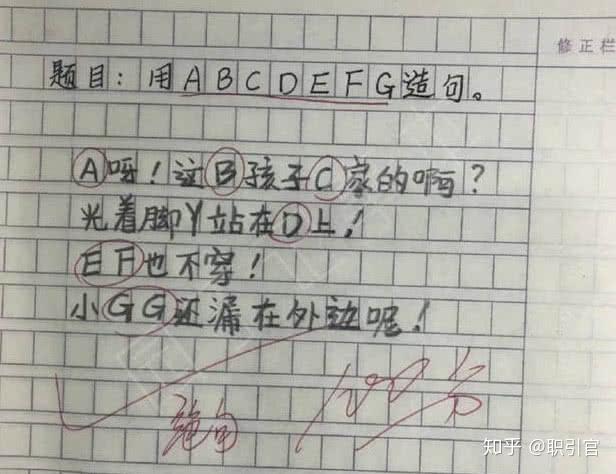 修正栏
题目：用ABCDEFG造句。
A呀！这B孩子C家的啊？
光着脚丫站在D上！
EF也不穿！
小GG还漏在外边呢！
绝句
100分
知乎 @职引官